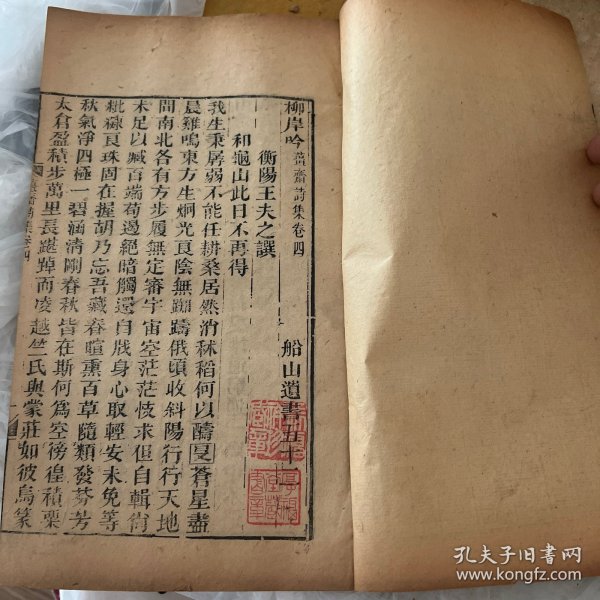 柳岸吟 薑齋詩集卷四 船山遺書五十
衡陽王夫之譔
和龜山此日不再得
我生秉孱弱不能任耕桑居然消秫稻何以酬㫤蒼星盡
晨雞鳴東方生炯光良陰無躑躅俄頃收斜陽行行天地
間南北各有方步履無定審宇宙空茫茫忮求但自輯尙
未足以臧百端苟遏絕暗觸還自戕身心取輕安未免等
粃穅良珠固在握胡乃忘吾藏春暄熏百草隨類發芬芳
秋氣淨四極一碧涵清剛春秋皆在斯何爲空徬徨積粟
太倉盈積步萬里長趠踔而凌越竺氏與蒙莊如彼烏篆
孔夫子旧书网
www.kongfz.com